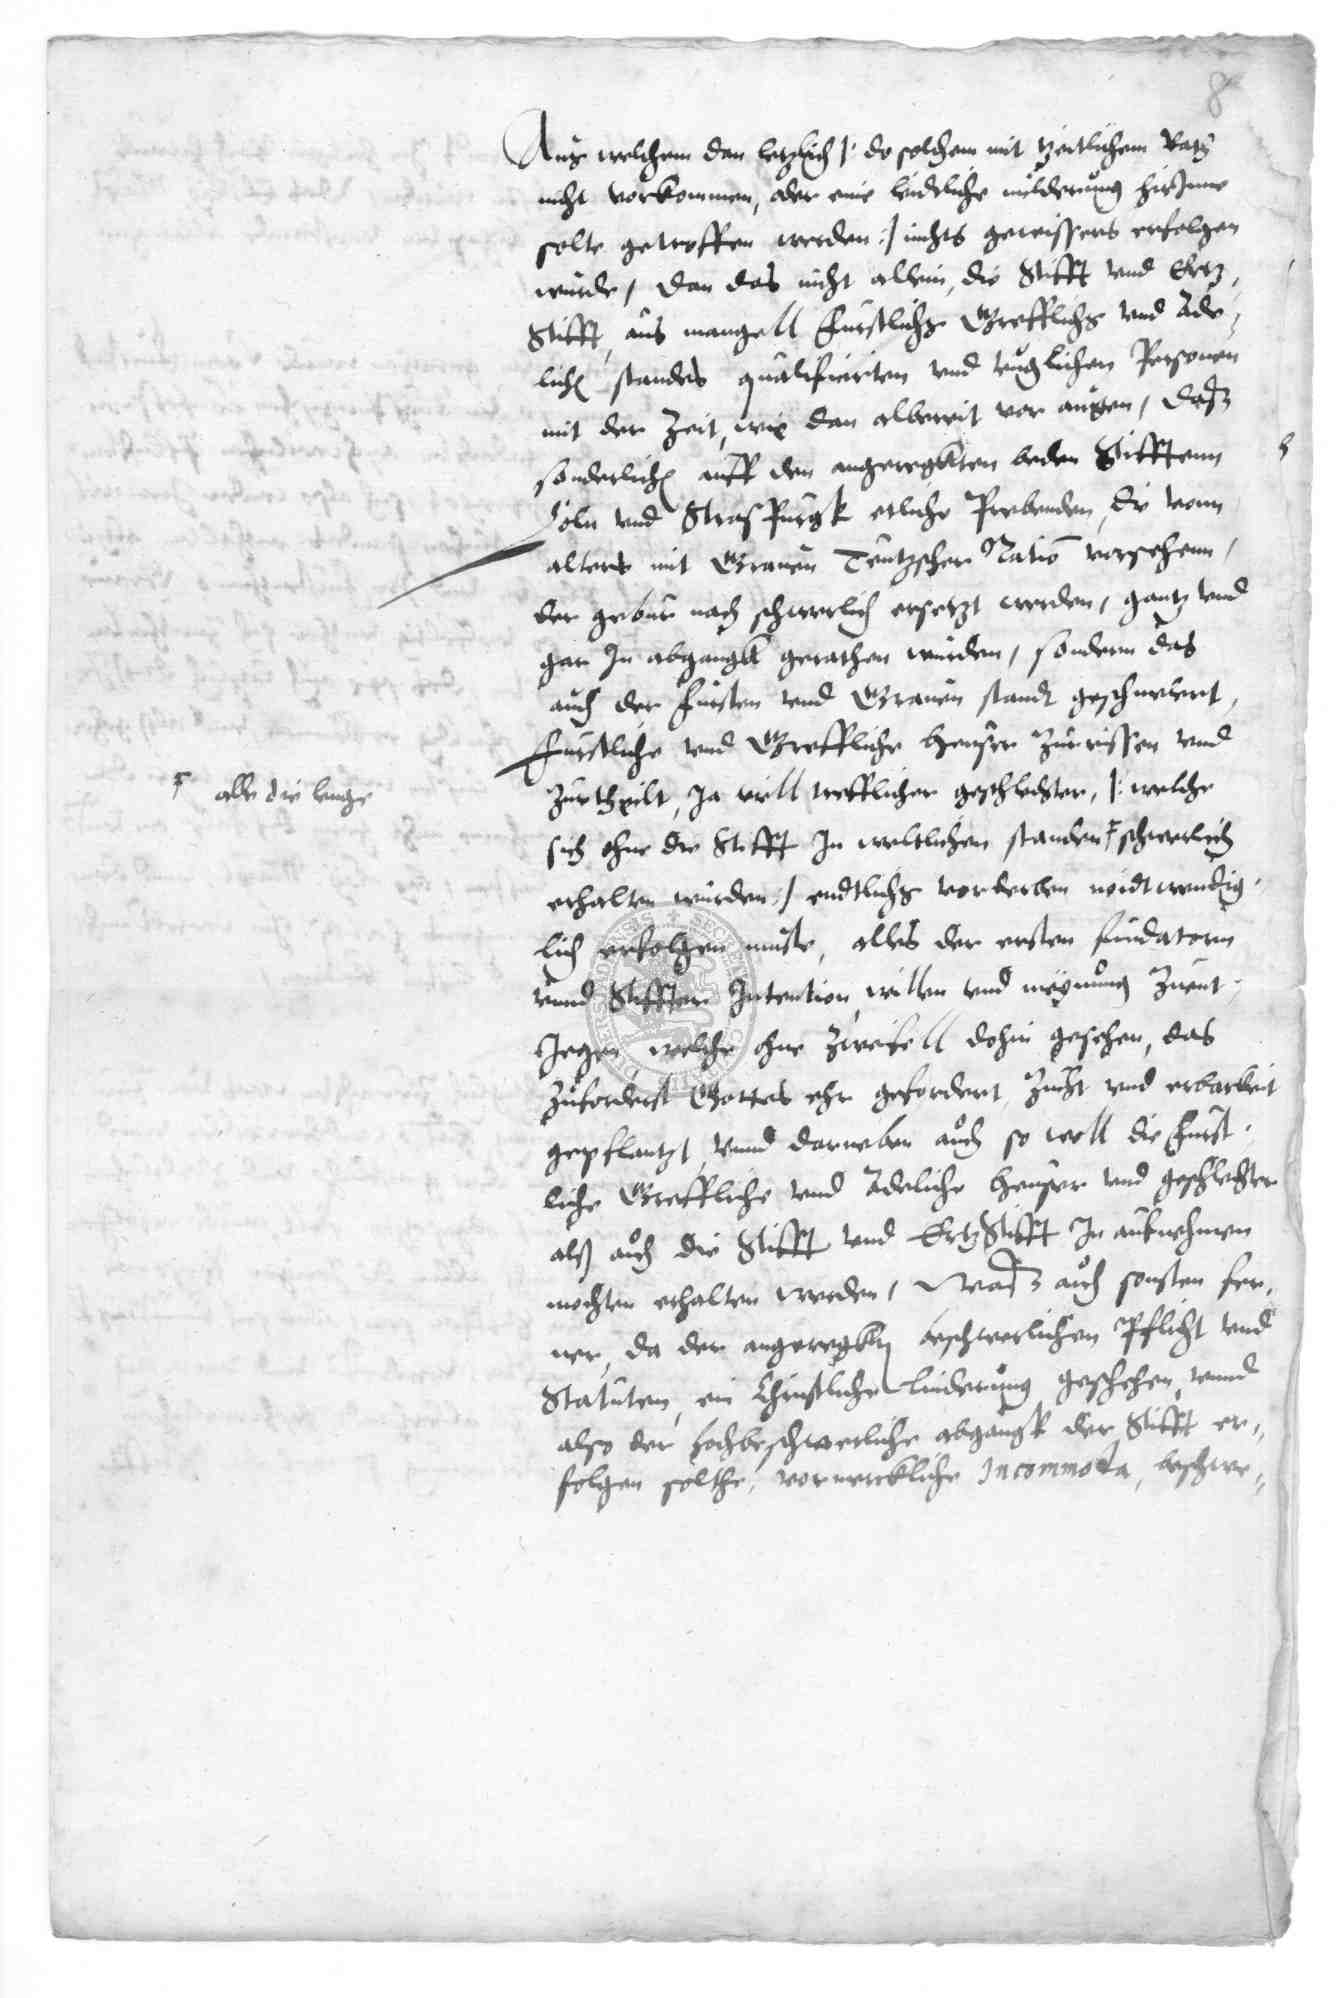 8
Aus welchem dan letzlich /: do solchem mit zeitlichem Rath
nicht vorkommen, oder eine leidtliche milderung hirInne
solte getroffen werden :/ nichts gewissers erfolgen
wurde, dan das nicht allein, die Stifft vnd Ertz,
Stifft, aus mangell Furstlichs Grefflichs vnd Ade,
lichs standes qualificirten vnd tuglichen Personen
mit der Zeit, wie dan albereit vor augen, das
sonderlich auff den angeregkten beden Stifftenn
Cöln vnd Straspurgk etliche Prebenden, die vonn
alters mit Grauen Teutzscher Natio versehenn,
der gebur nach schwerlich ersetzt werden, gantz vnd
gar In abgangk gerathen wurden, sondern das
auch der Fursten vnd Grauen standt geschmelert,
Furstliche vnd Greffliche Heuser Zurrissen vnd
Zurtheilt, Ja viell trefflicher geschlechter, /: welche
sich ohne die Stifft In weltlichen standen schwerlich
alle die lenge
erhalten wurden :/ endtlichs vorderben nodtwendig,
lich erfolgen muste, alles der ersten fundatorn
vnnd Stiffter Intention, willen vnd meynung Zuent,
Jegen, welche ohne Zweifell dohin gesehen, das
Zuforderst Gottes ehr gefordert, Zucht vnd erbarkeit
gepflantzt, vnnd darneben auch so well die Furst,
liche Greffliche vnd Adeliche Heuser vnd geschlechter
als auch die Stifft vnd ErtzStifft In aufnehmen
mochten erhalten werden, Was auch sonsten fer,
ner, da der angeregkten beschwerlichen Pflicht vnd
Statuten, ein Christliche linderung geschehen, vnnd
also der hochbeschwerliche abgangk der Stifft er,
folgen solthe, vormerckliche Incommoda, beschwe,